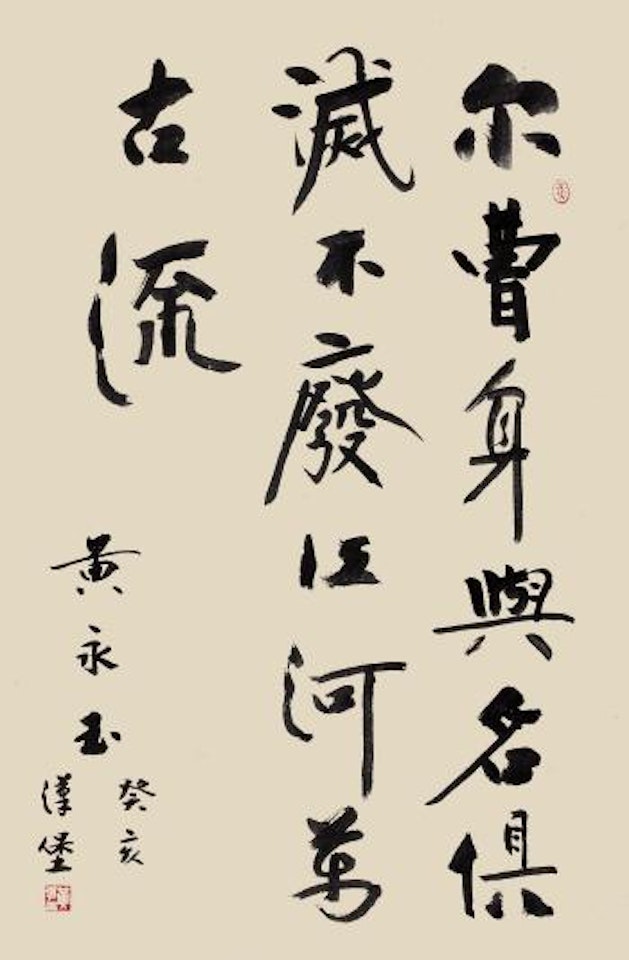 尔曹身與名俱
滅不廢江河萬
古流
黄永玉
癸亥
漢堡